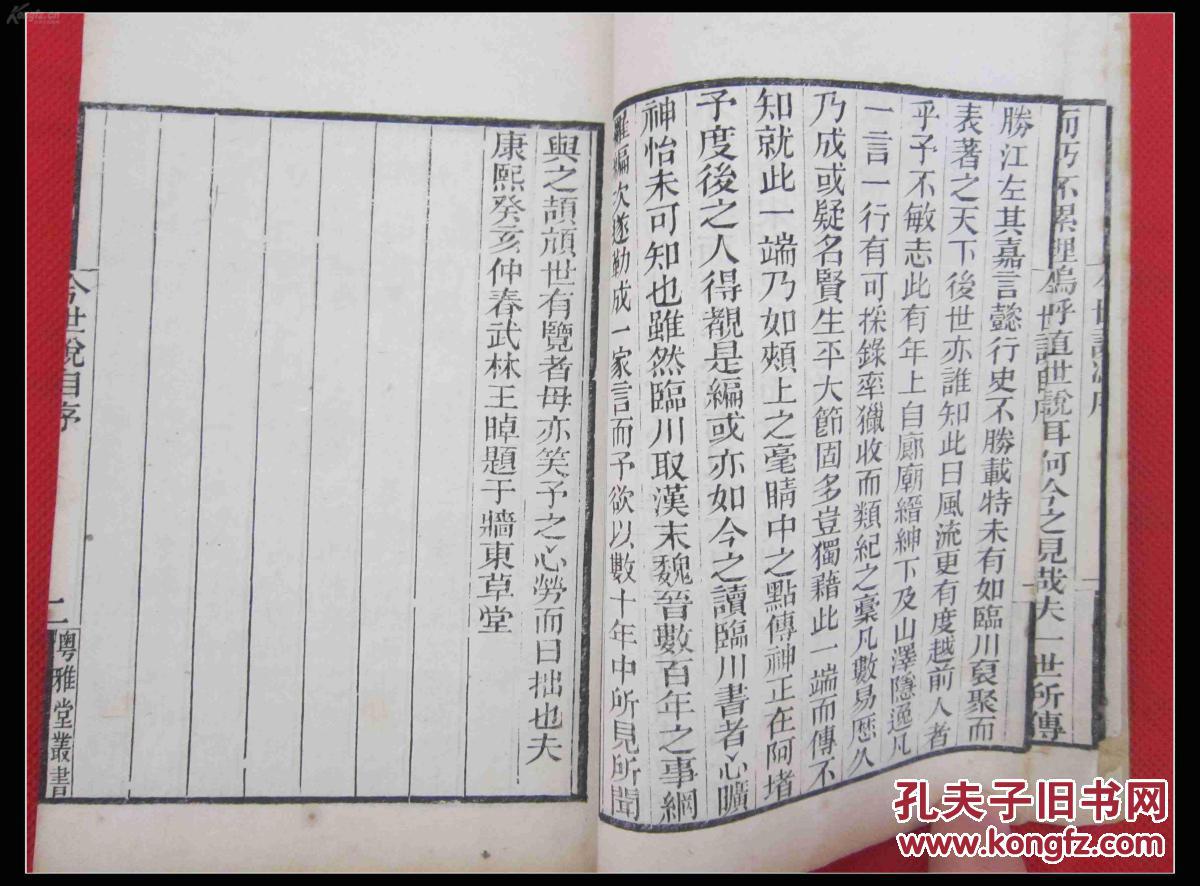 而巧不累理嗚呼直世說耳何今之見哉夫一世所傳
勝江左其嘉言懿行史不勝載特未有如臨川裒聚而
表著之天下後世亦誰知此日風流更有度越前人者
乎予不敏志此有年上自廊廟縉紳下及山澤隱逸凡
一言一行有可採錄率獵收而類紀之稾凡數易歷久
乃成或疑名賢生平大節固多豈獨藉此一端而傳不
知就此一端乃如頰上之毫睛中之點傳神正在阿堵
予度後之人得覩是編或亦如今之讀臨川書者心曠
神怡未可知也雖然臨川取漢末魏晉數百年之事綱
羅編次遂勒成一家言而予欲以數十年中所見所聞
與之頡頏世有覽者毋亦笑予之心勞而日拙也夫
康熙癸亥仲春武林王晫題于牆東草堂
今世說自序
二
粵雅堂叢書
孔夫子旧书网
www.kongfz.com
Kongfz.cn